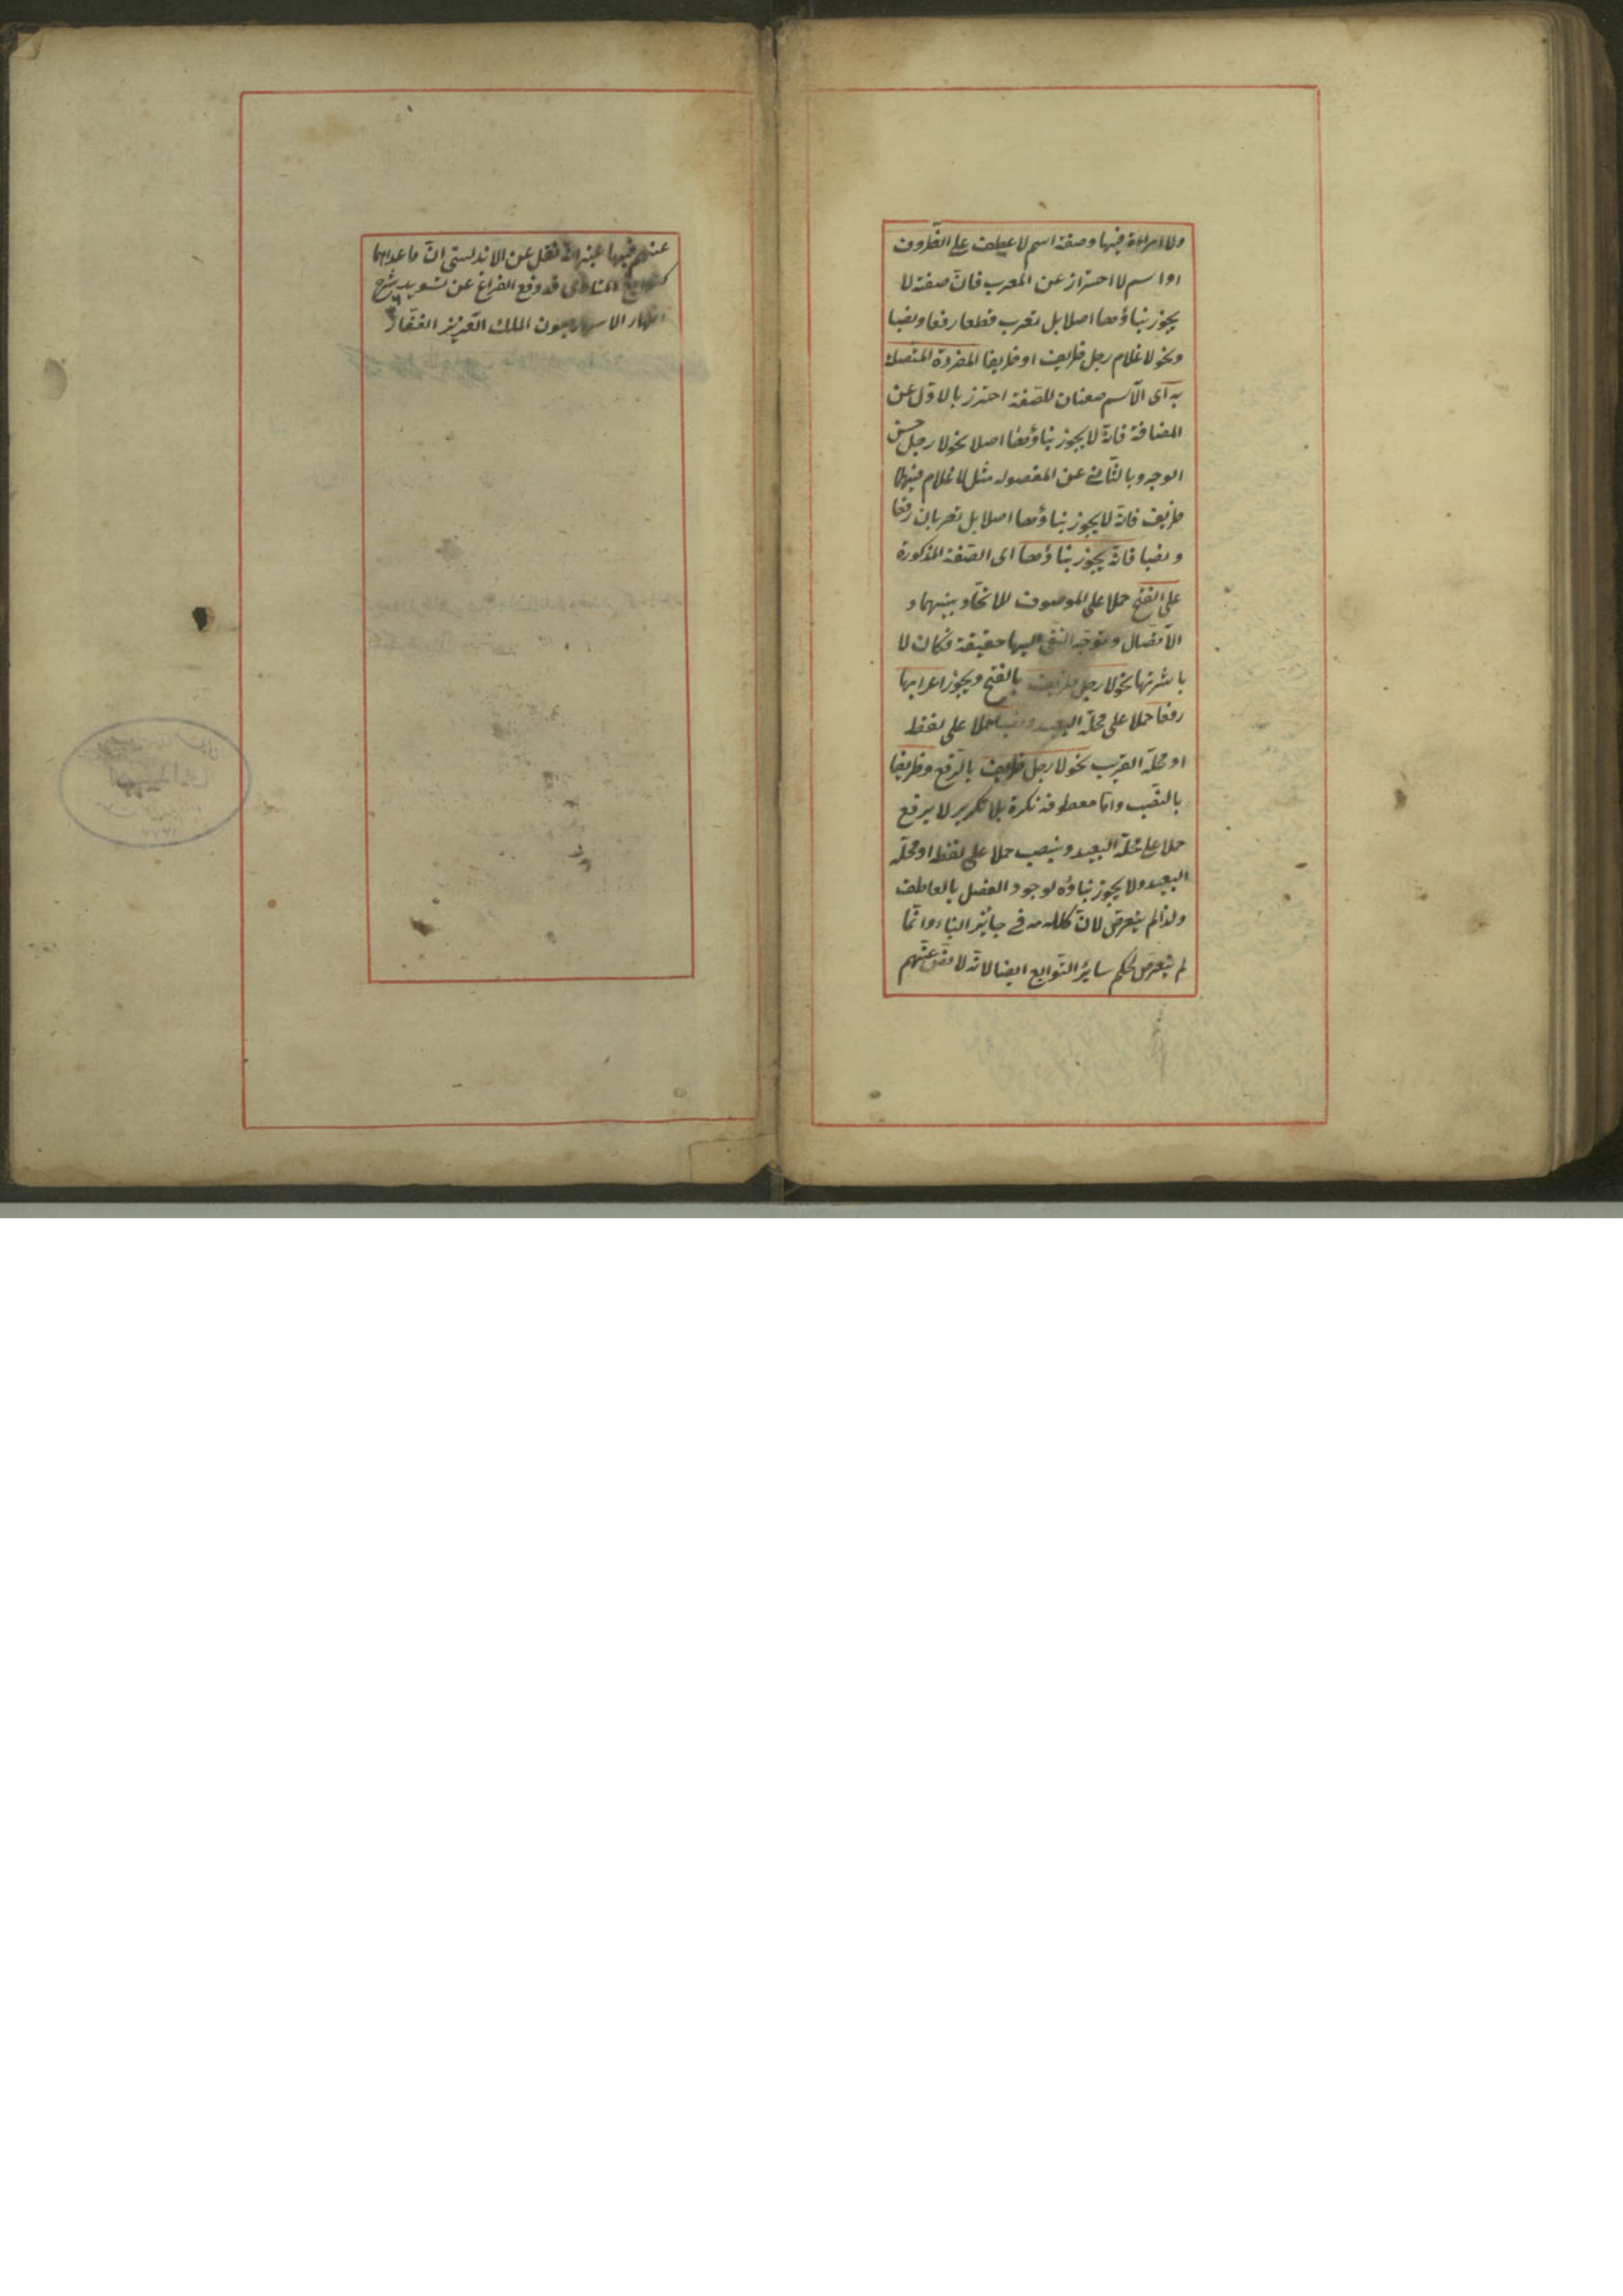 ولا امراءة فيها وصفة اسم لا عطف على الظروف
او اسم لا احتراز عن المعرب فان صفة لا
يجوز بناؤها اصلا بل تعرب قطعا رفعا ونصبا
ونحو لا غلام رجل ظريف او ظريفا المفردة المتصلة
به اى الاسم صفتان للصفة احترز بالاول عن
المضافة فانه لا يجوز بناؤها اصلا نحو لا رجل حسن
الوجه وبالثانى عن المفصولة مثل لا غلام فيها
ظريف فانه لا يجوز بناؤها اصلا بل تعربان رفعا
ونصبا فانه يجوز بناؤها اى الصفة المذكورة
على الفتح حملا على الموصوف للاتحاد بينهما و
الاتصال وتوجه النفى اليها حقيقة فكان لا
باشرتها نحو لا رجل ظريف بالفتح ويجوز اعرابها
رفعا حملا على محله البعيد ونصبا حملا على لفظه
او محله القريب نحو لا رجل ظريف بالرفع وظريفا
بالنصب واما معطوفه نكرة بلا تكرير لا يرفع
حملا على محله البعيد وينصب حملا على لفظه او محله
البعيد ولا يجوز بناؤه لوجود الفصل بالعاطف
ولذا لم يتعرض لان كلامه فى جايز البناء وانما
لم يتعرض لحكم ساير التوابع ايضا لانه لا نص عنهم
عنهم فيها غير انه نقل عن الاندلسى ان ما عداهما
كتوابع المنادى قد وقع الفراغ عن تسويد شرح
اظهار الاسرار بعون الملك العزيز الغفار